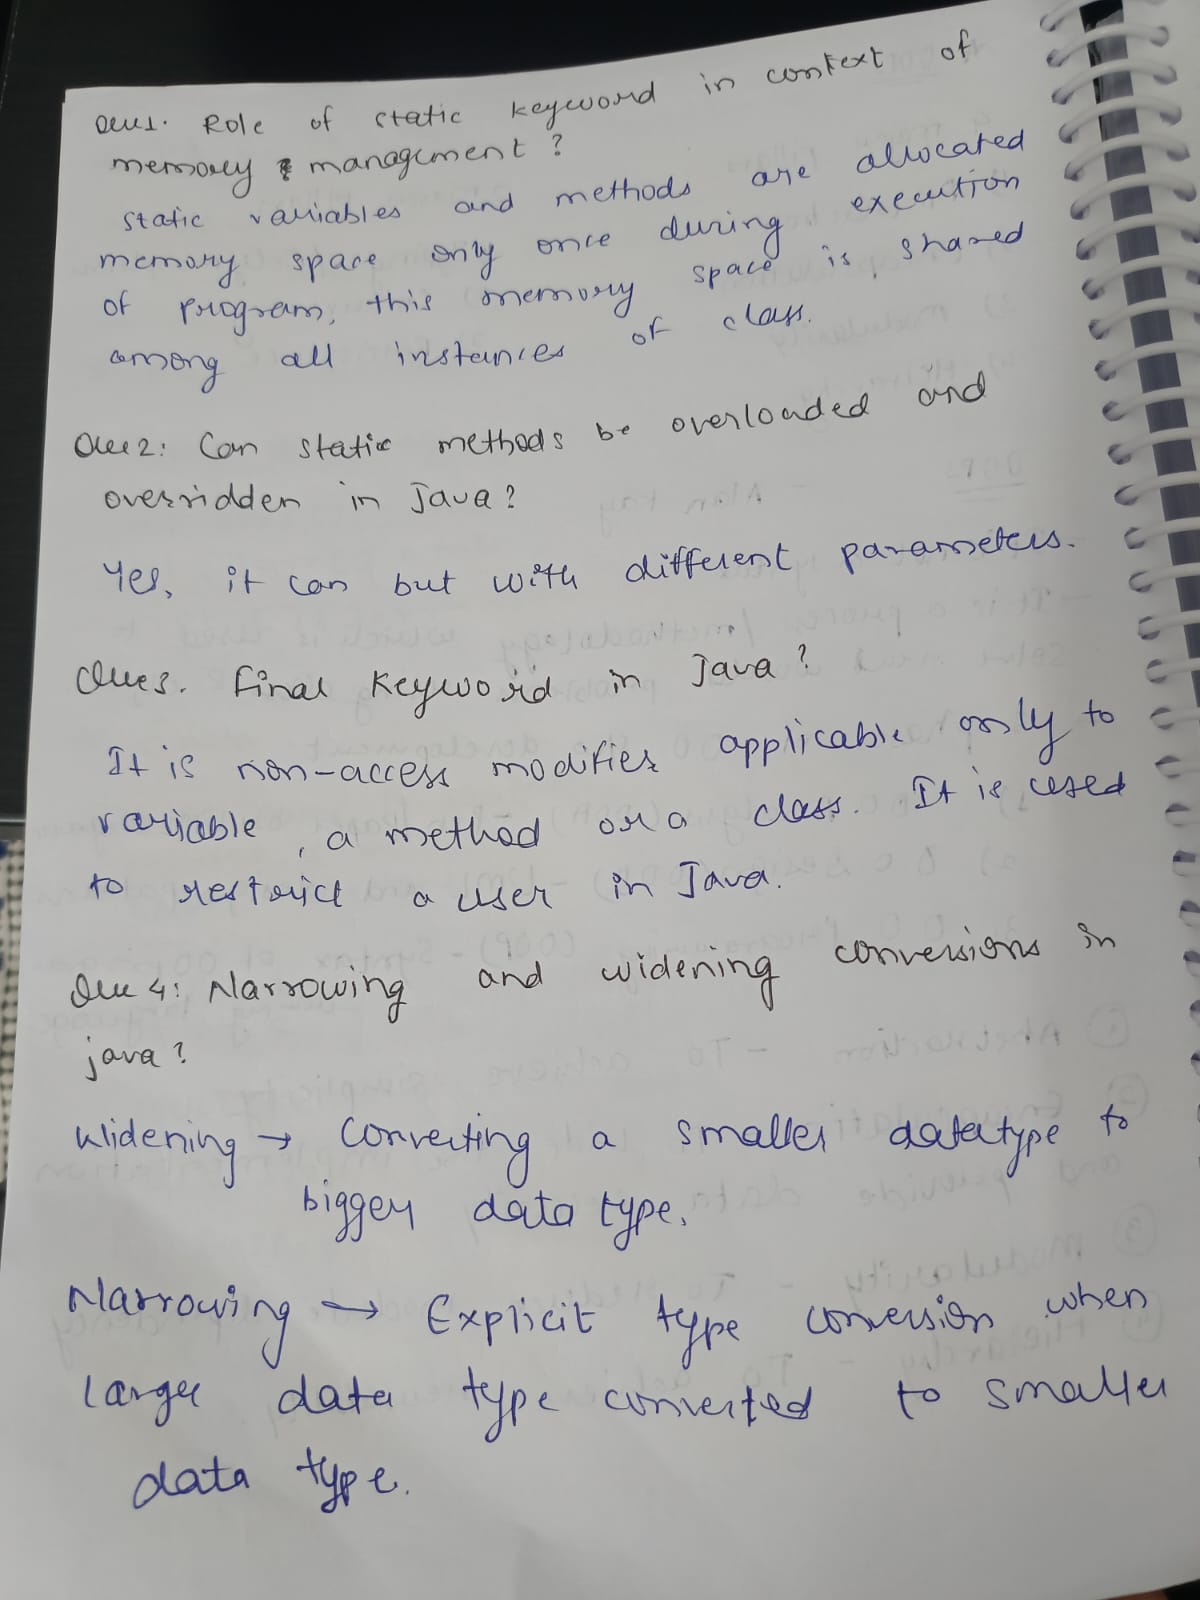 Ques1. Role of static keyword in context of
memory management?
static variables and methods are allocated
memory space only once during execution
of program, this memory space is shared
among all instances of class.
Que 2: Can static methods be overloaded and
overridden in Java?
Yes, it can but with different parameters.
Ques. final keyword in Java?
It is non-access modifier applicable only to
variable, a method or a class. It is used
to restrict a user in Java.
Que 4: Narrowing and widening conversions in
java?
Widening → Converting a smaller datatype to
bigger data type.
Narrowing → Explicit type conversion when
larger data type converted to smaller
data type.